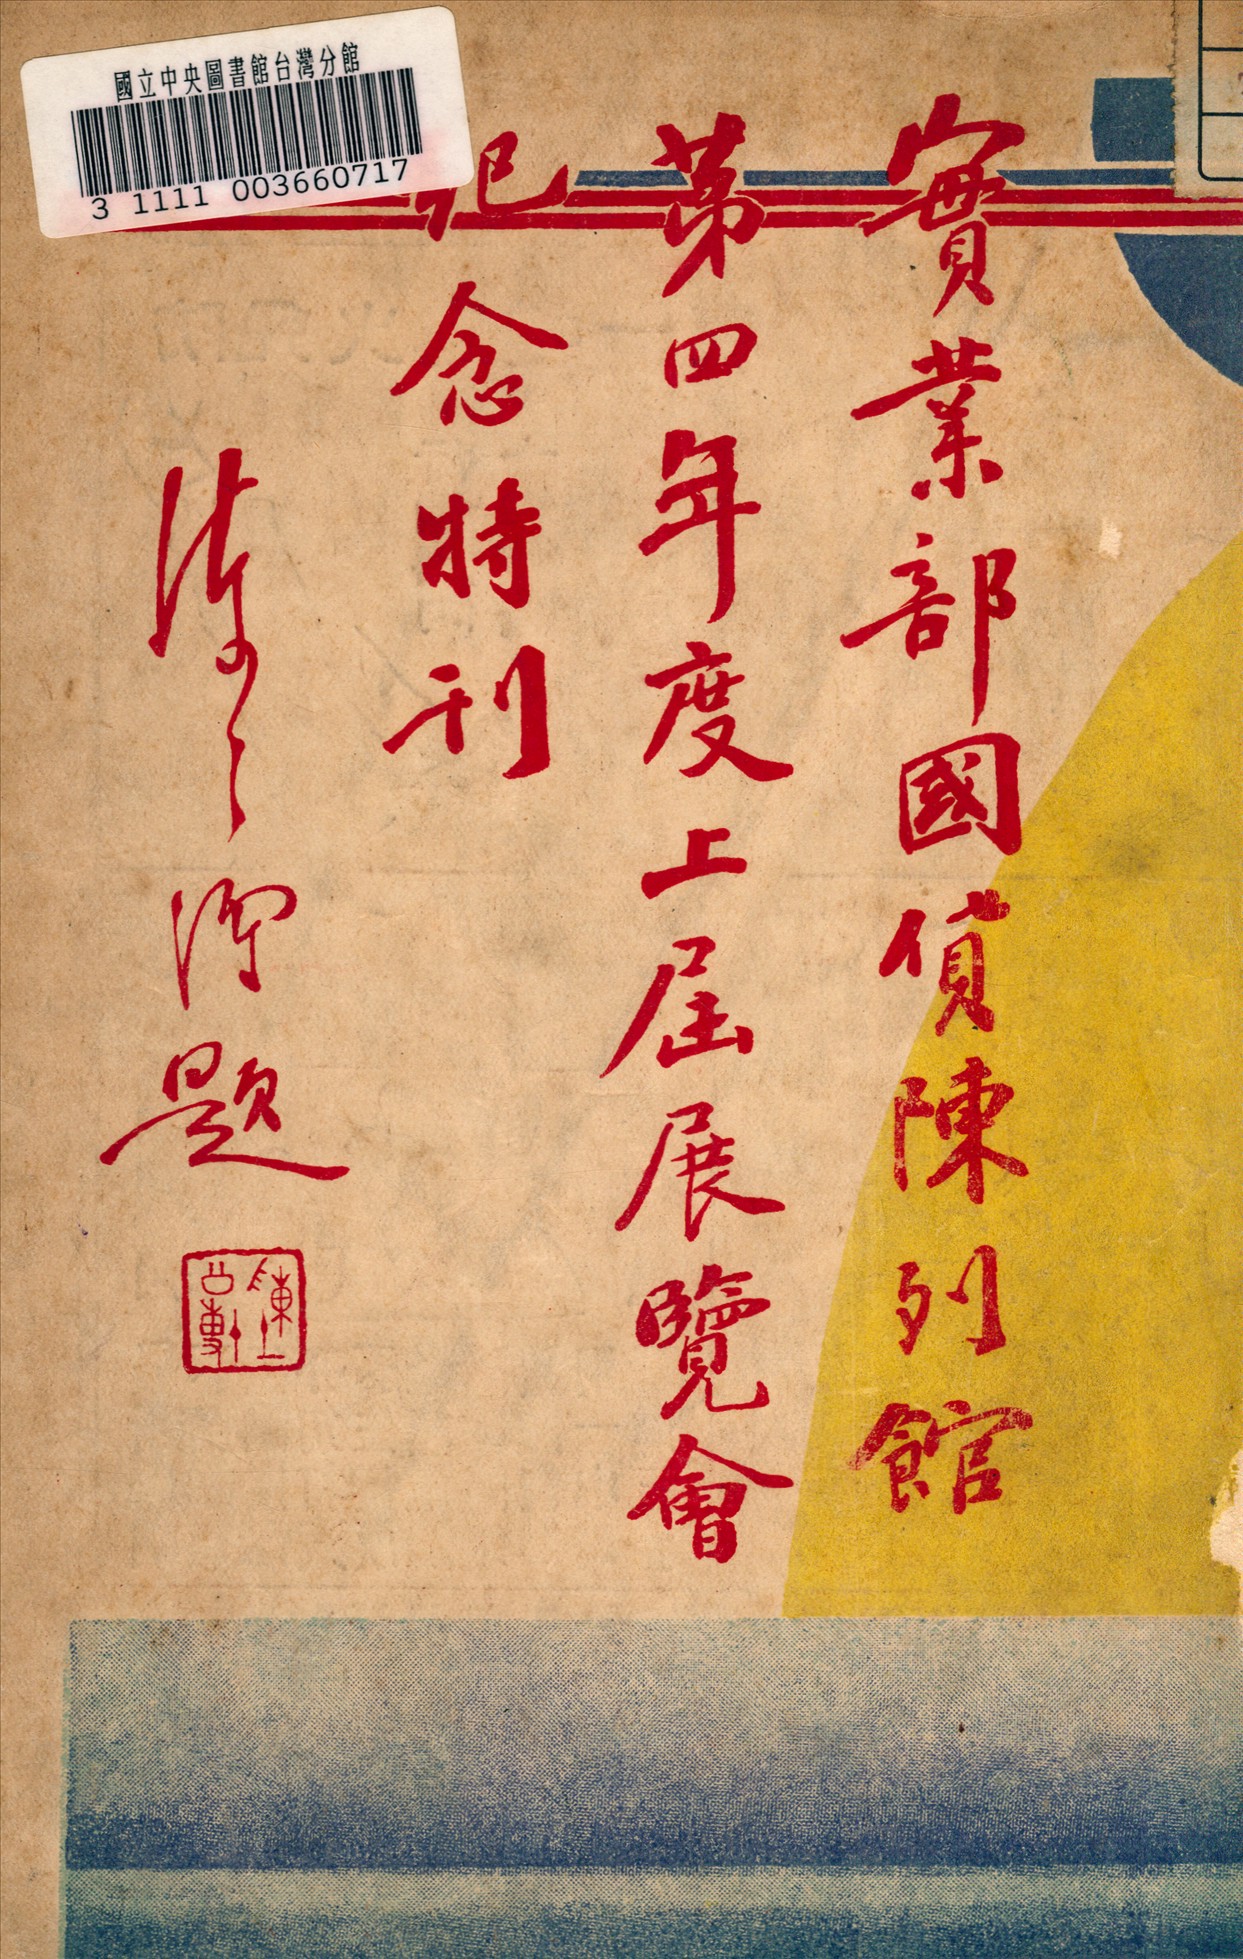 國立中央圖書館台灣分館
3 1111 003660717
實業部國貨陳列館
第四年度上屆展覽會
紀念特刊
陳公博題
陳公博